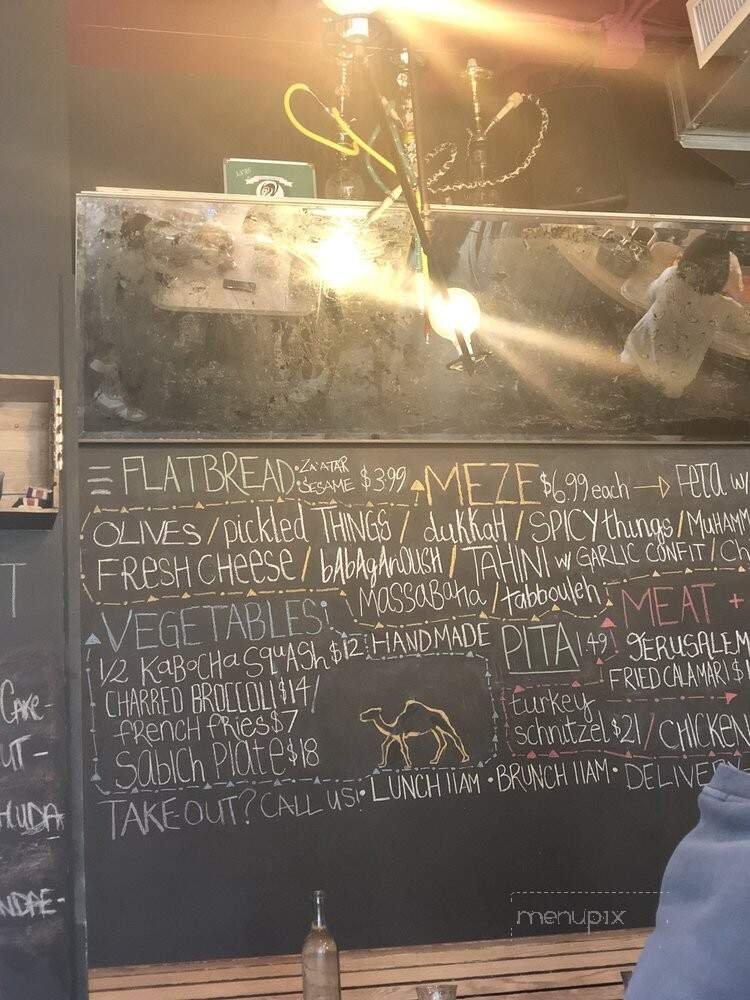 FLATBREAD • ZA'ATAR • SESAME $3.99 MEZE $6.99 each → FETA w/
OLIVES / pickled THINGS / dukkaH / SPICY things / MUHAMM
FRESH CHEESE / bAbAgANOUSH / TAHINI w/ GARLIC CONFIT / Ch
MASSABAHA / tabbouleh
MEAT +
VEGETABLES:
1/2 KABOCHA SQUASH $12
CHARRED BROCCOLI $14 /
fRENCH fRIES $7
SAbICH PlATE $18
HANDMADE PITA 1.49
JERUSALEM
FRIED CALAMARI $1
turkey
schnitzel $21 / CHICKEN
TAKE-OUT? CALL US! • LUNCH 11AM • BRUNCH 11AM • DELIVERY
T
CAKE-
UT-
HUDA
NDAE-
menupix